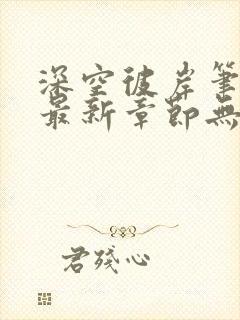 深空彼岸筆
最新章節無
君殘心